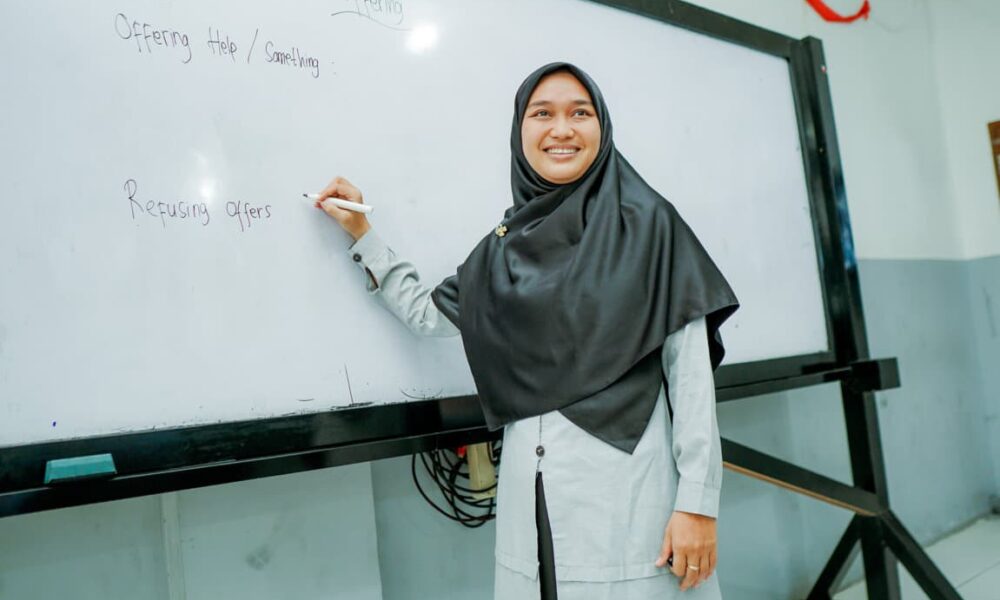 Offering
Offering Help / Something :
Refusing Offers